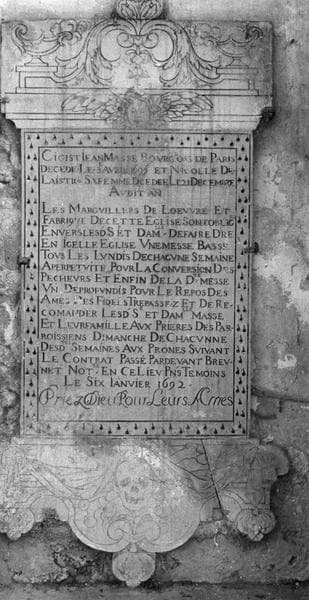 CI GIST JEAN MASSE BOURGOIS DE PARIS
DECEDE LE 5 AVRIL 1695 ET NICOLLE DE
LAISTRE SA FEMME DCEDEE LE 21 DECEMBRE
AUDIT AN
LES MARGVILLERS DE LOEUVRE ET
FABRIQVE DE CETTE EGLISE SONT OBLIGE
ENVERS LESD S ET DAM DE FAIRE DIRE
EN ICELLE EGLISE VNE MESSE BASSE
TOVS LES LVNDIS DE CHACVNE SEMAINE
A PERPETVITE POVR LA CONVERSION DES
PECHEVRS ET ENFIN DE LA D MESSE
VN DEPROFVNDIS POVR LE REPOS DES
AMES DES FIDELS TREPASSEZ ET DE RE-
COMANDER LESD S ET DAM MASSE
ET LEVR FAMILLE AVX PRIERES DES PAR-
ROISSIENS DIMANCHE DE CHACVNNE
DESD SEMAINES AVX PRONES SVIVANT
LE CONTRAT PASSE PARDEVANT BREV-
NET NOT. EN CE LIEV PNS TEMOINS
LE SIX IANVIER 1692
Priez Dieu Pour Leurs Ames